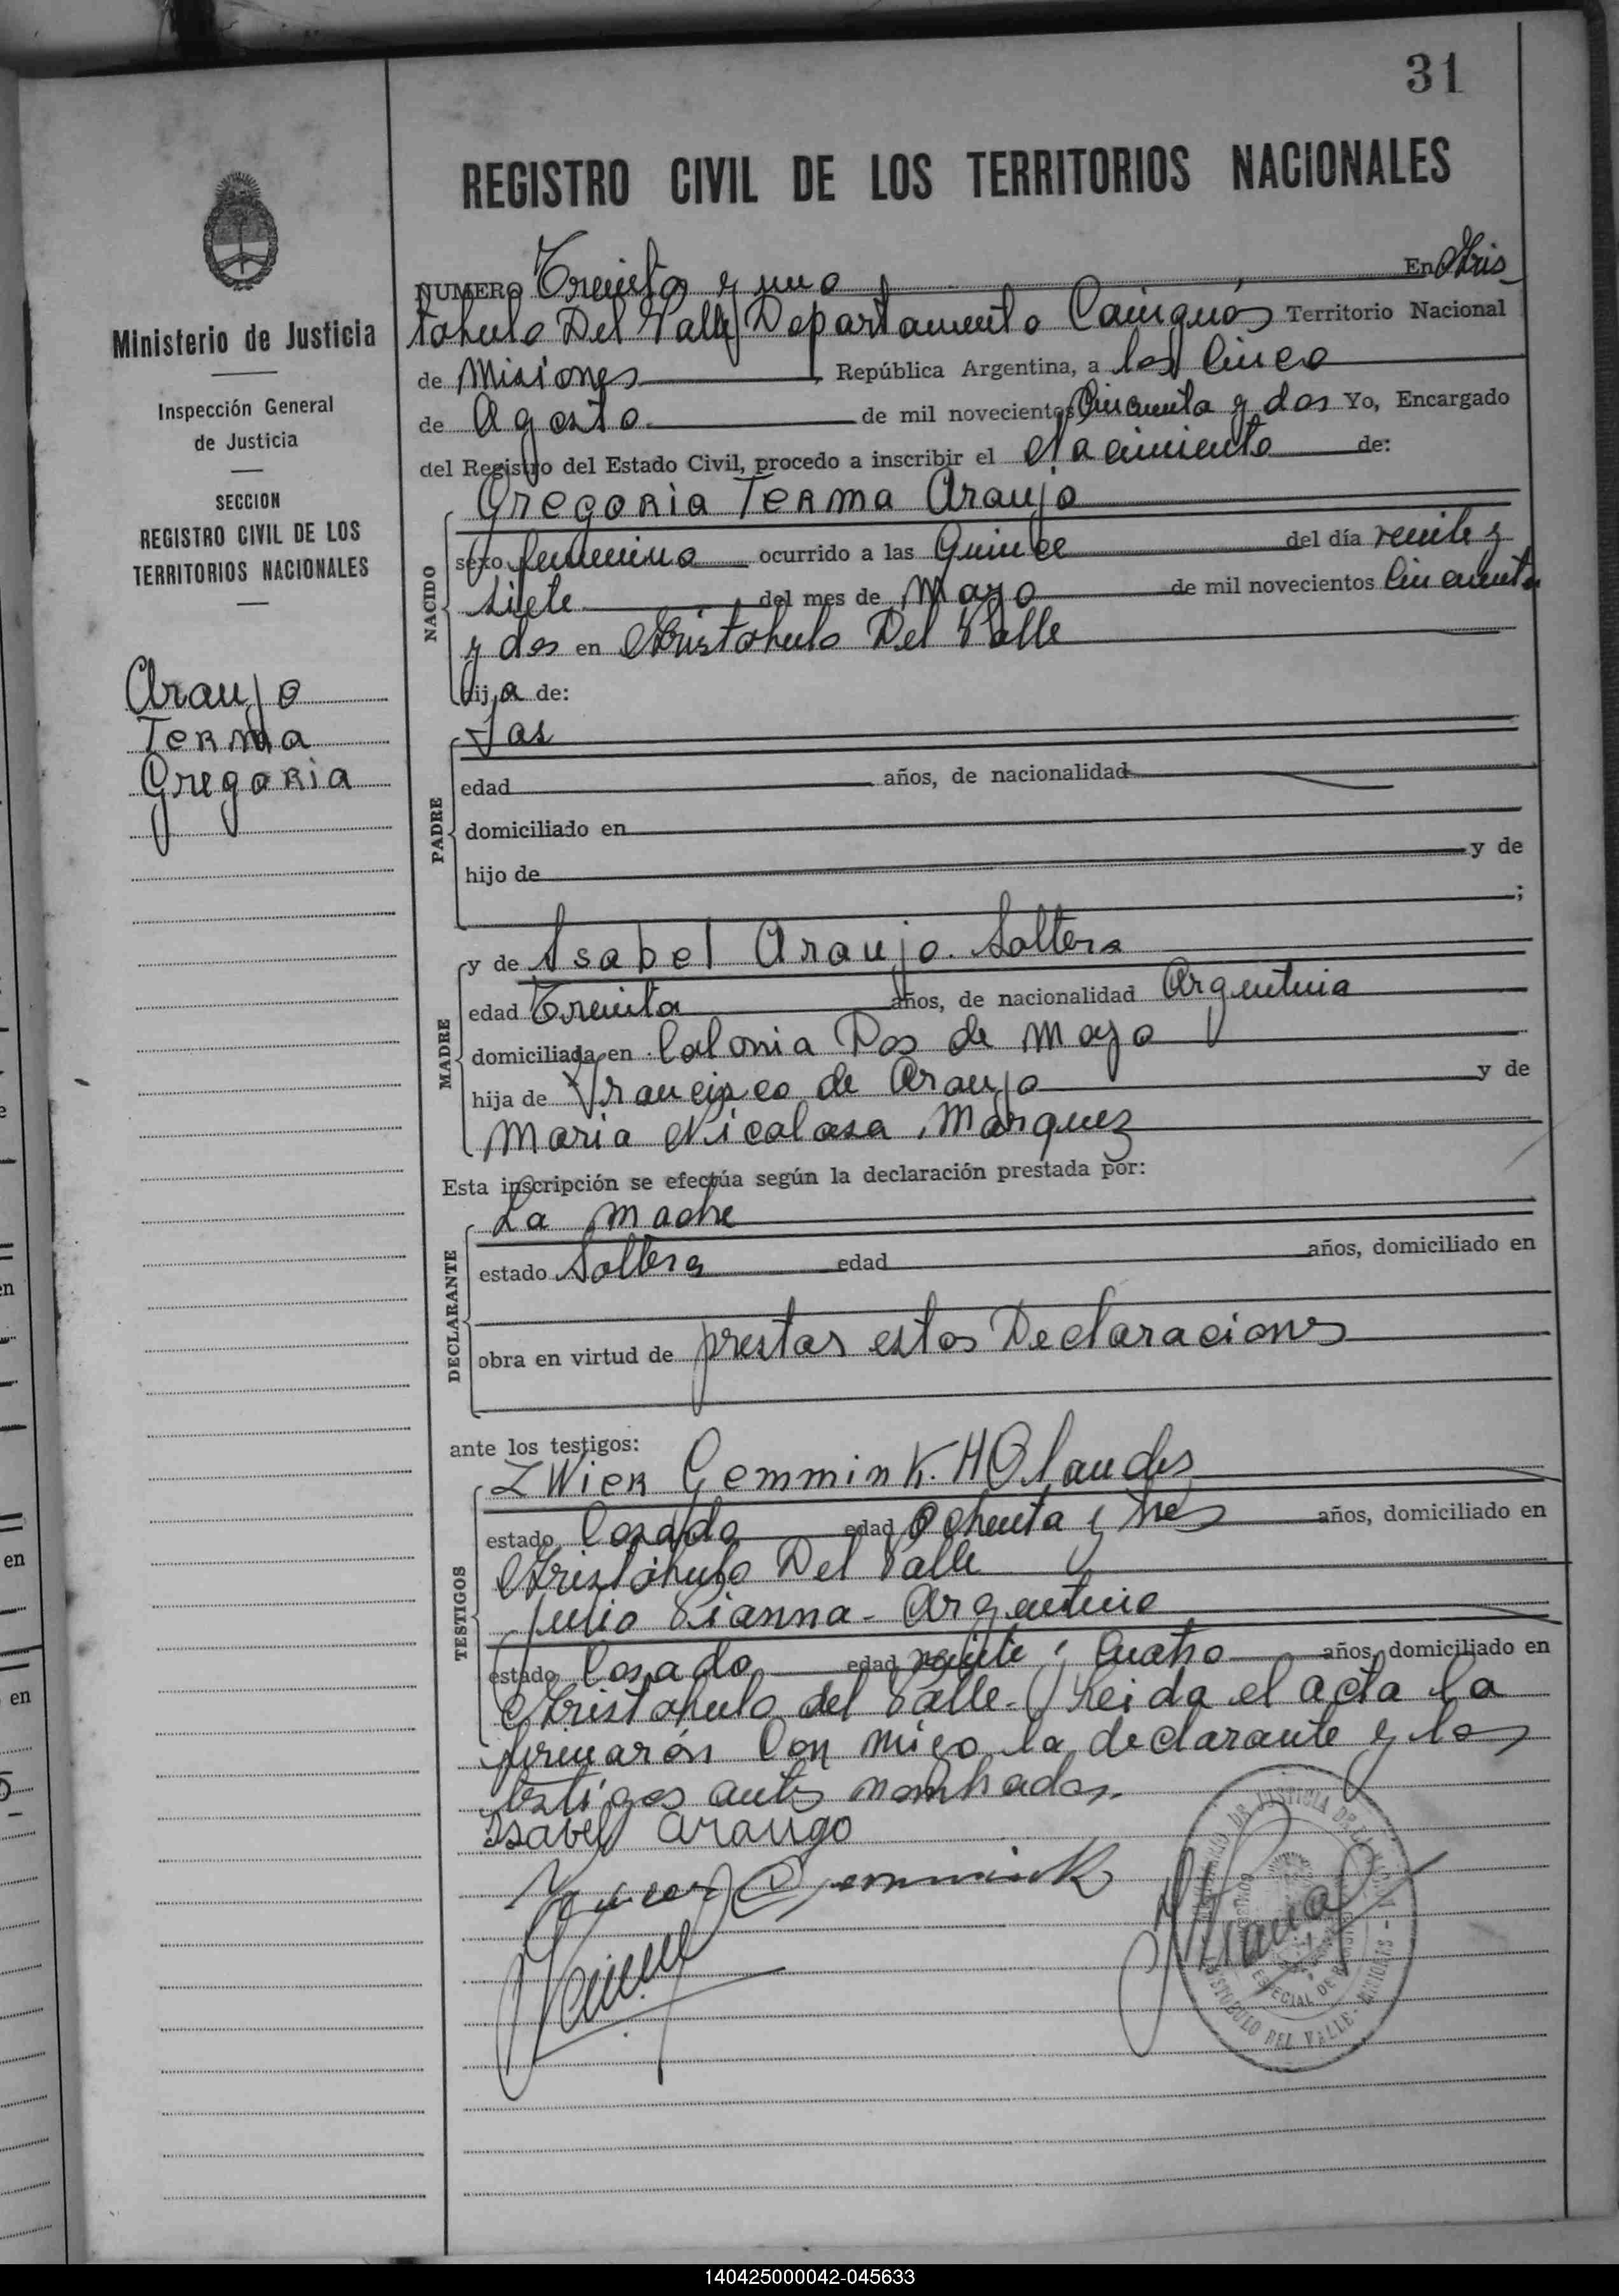 31
REGISTRO CIVIL DE LOS TERRITORIOS NACIONALES
Ministerio de Justicia
Inspección General
de Justicia
SECCION
REGISTRO CIVIL DE LOS
TERRITORIOS NACIONALES
Araujo
Terma
Gregoria
NUMERO Treinta y uno En Aris
tobulo Del Valle Departamento Cainguás Territorio Nacional
de Misiones República Argentina, a los Cinco
de Agosto de mil novecientos Cincuenta y dos Yo, Encargado
del Registro del Estado Civil, procedo a inscribir el Nacimiento de:
Gregoria Terma Araujo
NACIDO
sexo femenino ocurrido a las Quince del día veinte y
siete del mes de Mayo de mil novecientos Cincuenta
y dos en Aristobulo Del Valle
hija de:
PADRE
edad años, de nacionalidad
domiciliado en
hijo de y de
;
MADRE
y de Isabel Araujo. Soltera
edad Treinta años, de nacionalidad Argentina
domiciliada en Colonia Dos de Mayo
hija de Francisco de Araujo y de
Maria Nicolasa Marquez
Esta inscripción se efectúa según la declaración prestada por:
DECLARANTE
La Madre
estado Soltera edad años, domiciliado en
obra en virtud de prestar estas Declaraciones
ante los testigos:
TESTIGOS
ZWier Gemmink. HOlandes
estado Casado edad Ochenta y tres años, domiciliado en
Aristobulo Del Valle
Julio Vianna - Argentino
estado Casado edad veinte i Cuatro años, domiciliado en
Aristobulo del Valle - Leida el acta la
firmarón Con migo la declarante y los
testigos antes nombrados.
Isabel Araugo
Gemmink
JUSTICIA DE
ESPECIAL DE
ARISTOBULO DEL VALLE - MISIONES
140425000042-045633